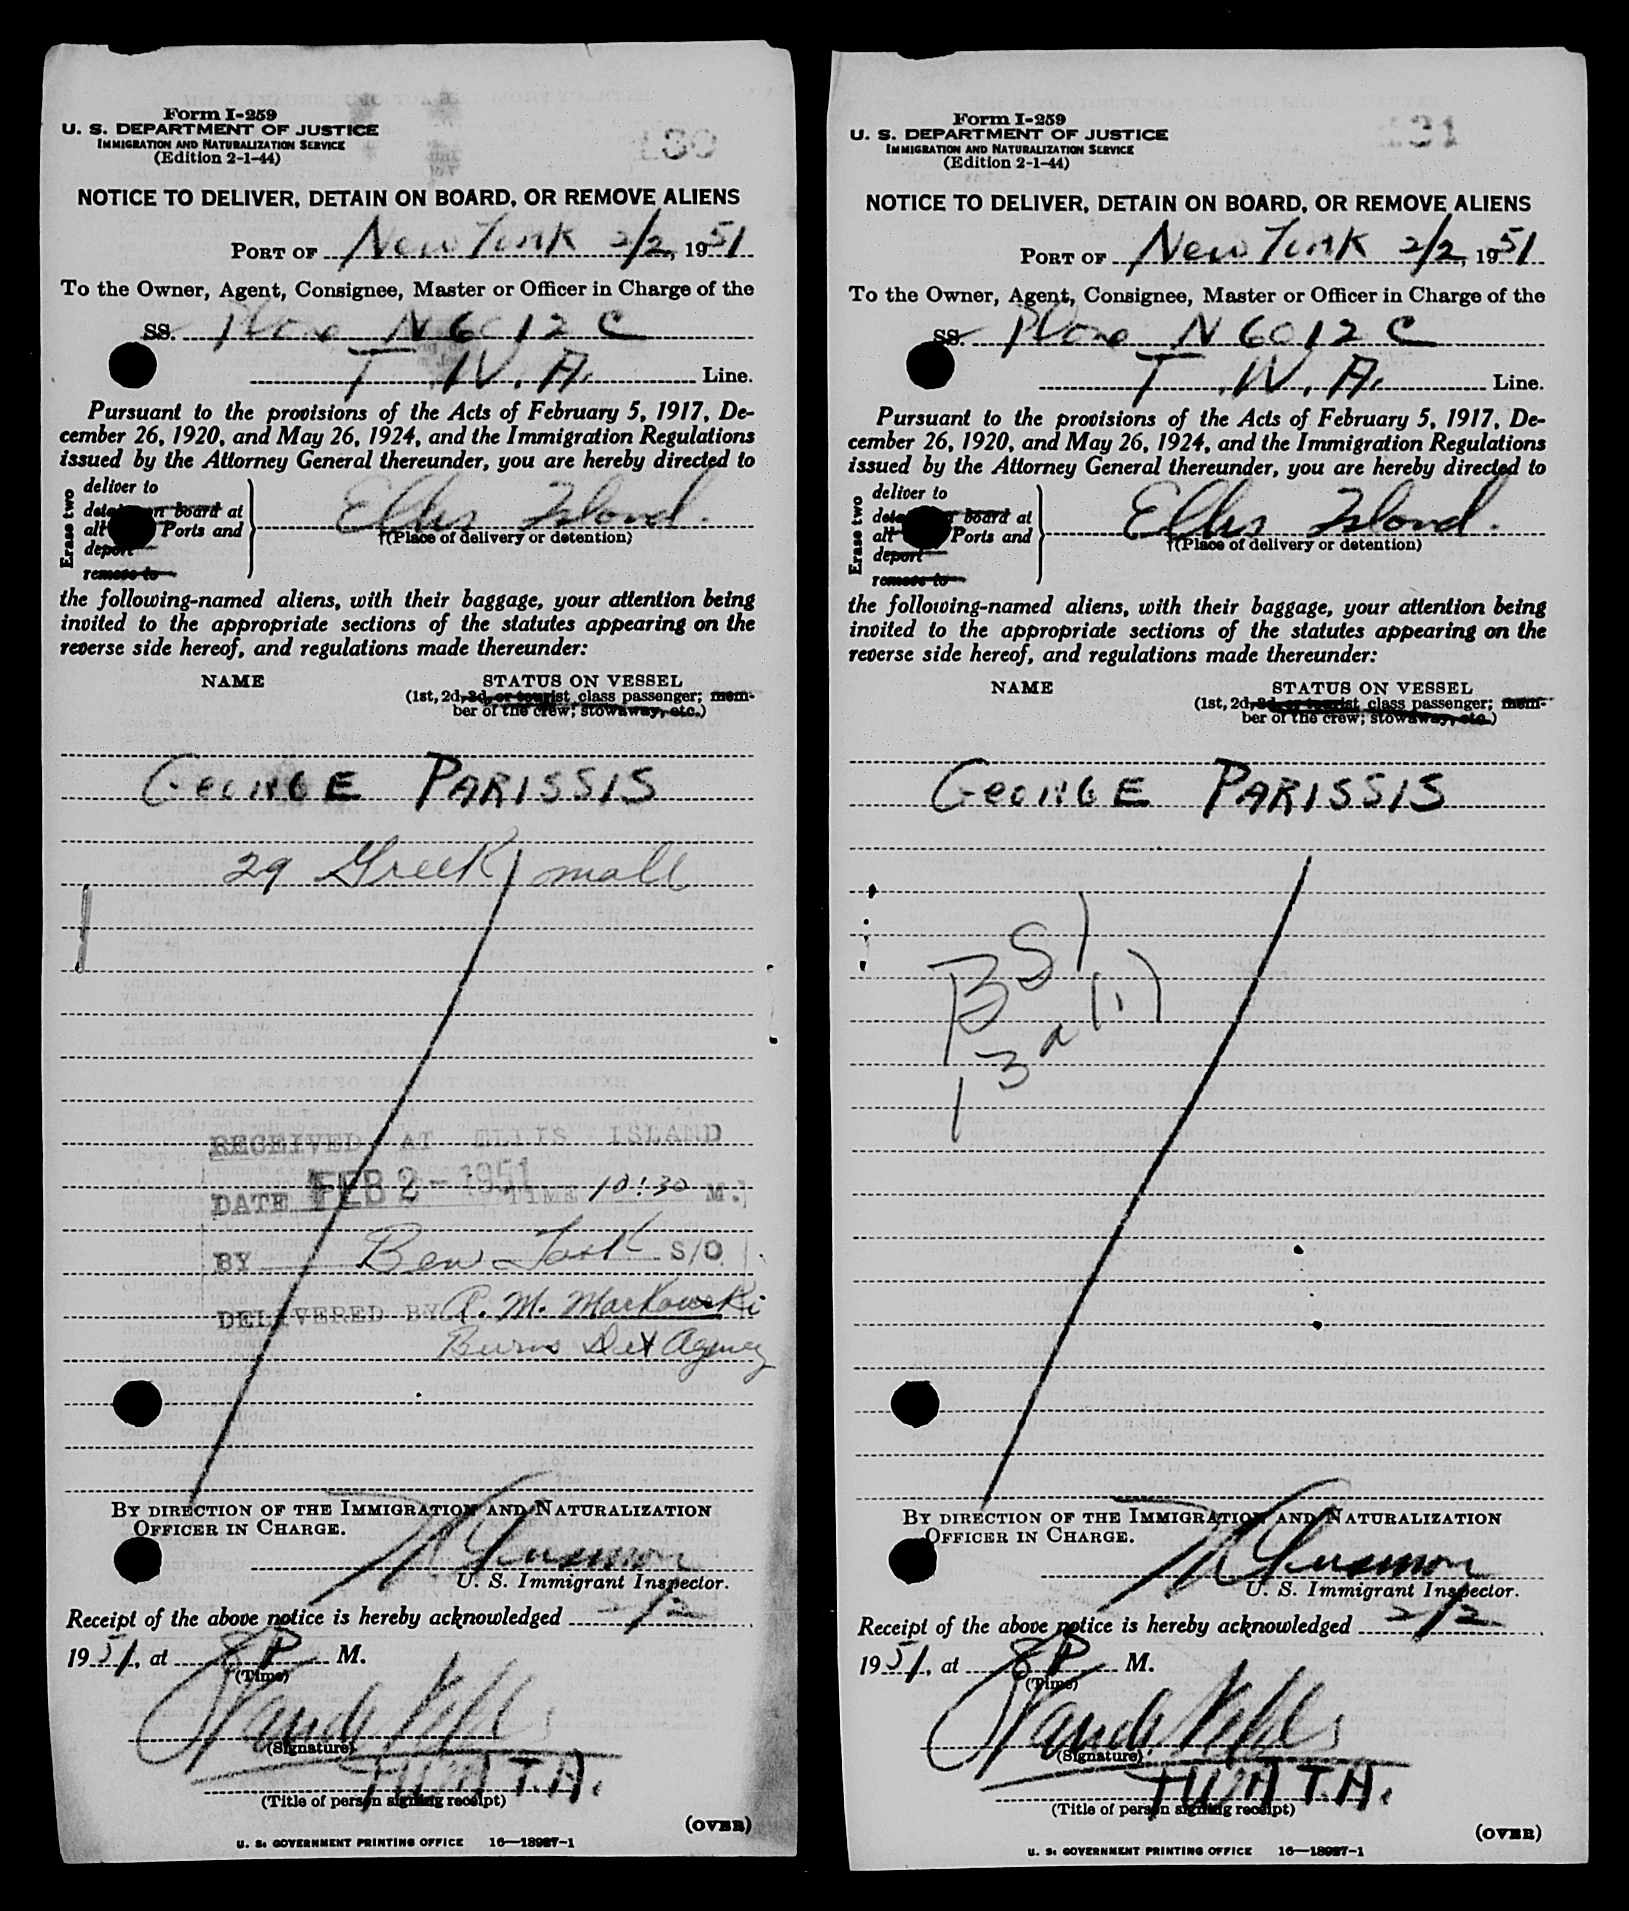 Form I-259
U. S. DEPARTMENT OF JUSTICE
IMMIGRATION AND NATURALIZATION SERVICE
(Edition 2-1-44)
NOTICE TO DELIVER, DETAIN ON BOARD, OR REMOVE ALIENS
PORT OF New York 2/2, 1951
To the Owner, Agent, Consignee, Master or Officer in Charge of the
SS. Plane N6012C
T.W.A. Line.
Pursuant to the provisions of the Acts of February 5, 1917, De-
cember 26, 1920, and May 26, 1924, and the Immigration Regulations
issued by the Attorney General thereunder, you are hereby directed to
Erase two
deliver to
board at
all Ports and
deport
remove to
Ellis Island.
†(Place of delivery or detention)
the following-named aliens, with their baggage, your attention being
invited to the appropriate sections of the statutes appearing on the
reverse side hereof, and regulations made thereunder:
NAME STATUS ON VESSEL
(1st, 2d, 3d, or tourist class passenger; mem-
ber of the crew; stowaway, etc.)
GEORGE PARISSIS
29 Greek male
RECEIVED AT ELLIS ISLAND
DATE FEB 2 - 1951 TIME 10:30 M.
BY Ben S/O
DELIVERED BY P. M. Markowski
Burns Det Agency
BY DIRECTION OF THE IMMIGRATION AND NATURALIZATION
OFFICER IN CHARGE.
U. S. Immigrant Inspector.
Receipt of the above notice is hereby acknowledged 2/2
1951, at 8 P M.
(Time)
(Signature)
TWA T.A.
(Title of person signing receipt)
(OVER)
U. S. GOVERNMENT PRINTING OFFICE 16—18927-1
Form I-259
U. S. DEPARTMENT OF JUSTICE
IMMIGRATION AND NATURALIZATION SERVICE
(Edition 2-1-44)
131
NOTICE TO DELIVER, DETAIN ON BOARD, OR REMOVE ALIENS
PORT OF New York 2/2, 1951
To the Owner, Agent, Consignee, Master or Officer in Charge of the
SS. Plane N6012C
T.W.A. Line.
Pursuant to the provisions of the Acts of February 5, 1917, De-
cember 26, 1920, and May 26, 1924, and the Immigration Regulations
issued by the Attorney General thereunder, you are hereby directed to
Erase two
deliver to
board at
all Ports and
deport
remove to
Ellis Island.
†(Place of delivery or detention)
the following-named aliens, with their baggage, your attention being
invited to the appropriate sections of the statutes appearing on the
reverse side hereof, and regulations made thereunder:
NAME STATUS ON VESSEL
(1st, 2d, 3d, or tourist class passenger; mem-
ber of the crew; stowaway, etc.)
GEORGE PARISSIS
BSI
13 a (1)
BY DIRECTION OF THE IMMIGRATION AND NATURALIZATION
OFFICER IN CHARGE.
U. S. Immigrant Inspector.
Receipt of the above notice is hereby acknowledged 2/2
1951, at 8 P M.
(Time)
(Signature)
TWA T.A.
(Title of person signing receipt)
(OVER)
U. S. GOVERNMENT PRINTING OFFICE 16—18927-1